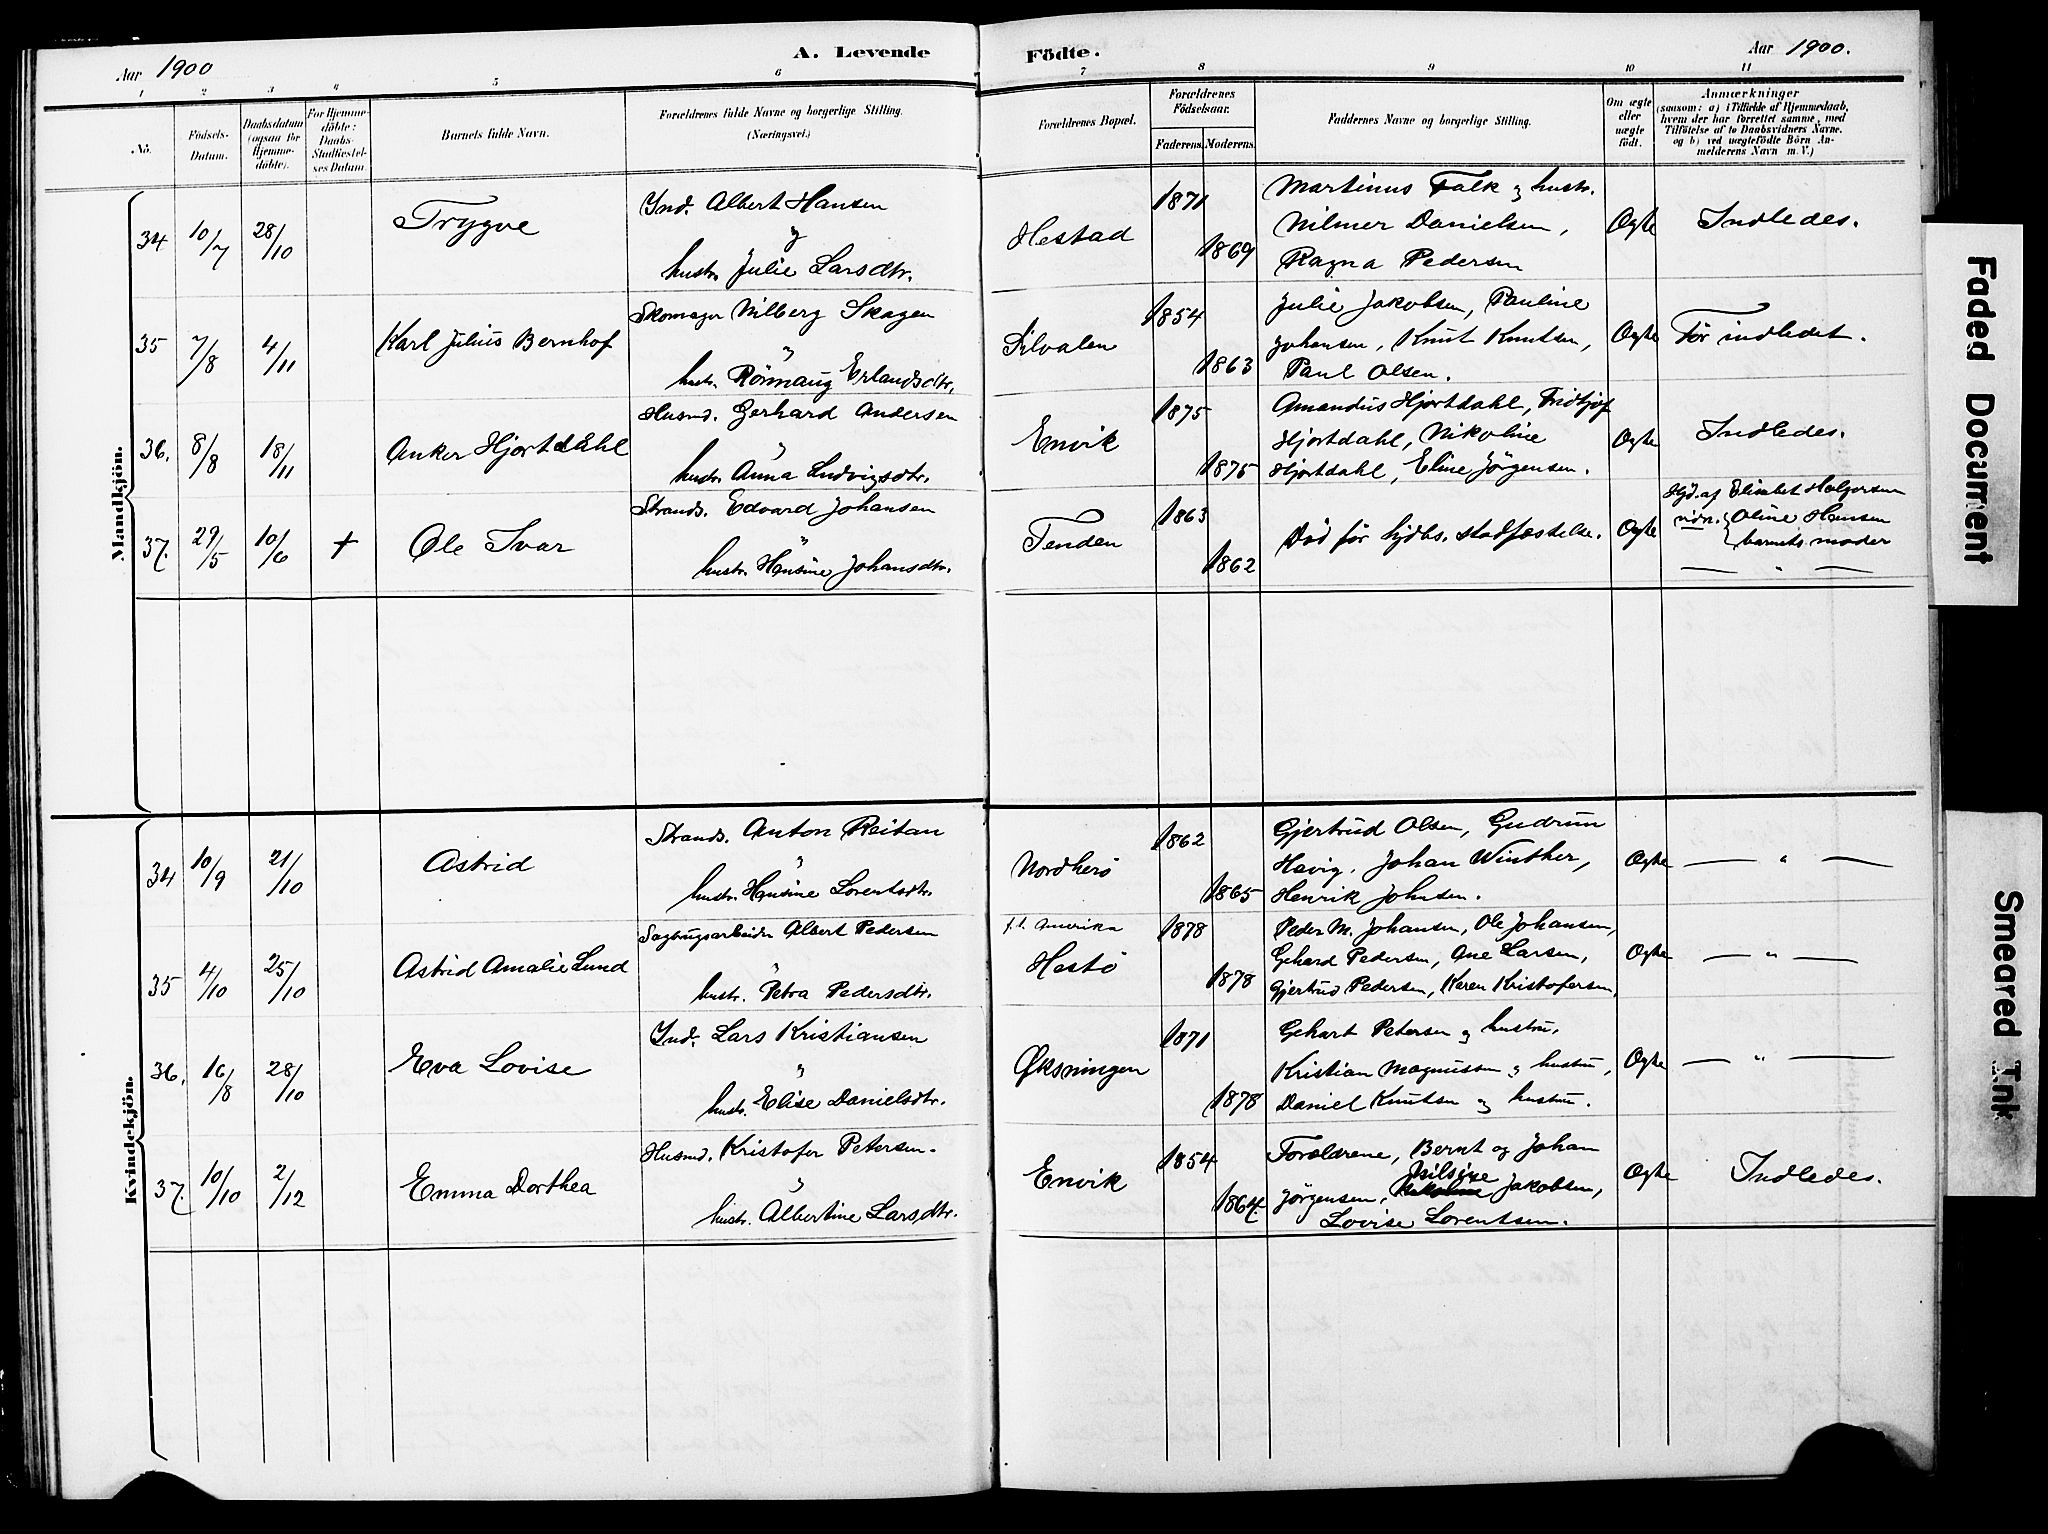 Aar 1900
A. Levende
Födte.
Aar 1900.
1 2 3 4 5 6 7 8 9 10 11
No.
Födsels-
Datum.
Daabsdatum
(ogsaa for
Hjemme-
döbte).
For Hjemme-
döbte:
Daabs-
Stadfæstel-
ses Datum.
Barnets fulde Navn.
Forældrenes fulde Navne og borgerlige Stilling.
(Næringsvei.)
Forældrenes Bopæl.
Forældrenes
Födselsaar.
Faderens. Moderens.
Faddernes Navne og borgerlige Stilling.
Om ægte
eller
uægte
födt.
Anmærkninger
(saasom: a) i Tilfælde af Hjemmedaab,
hvem der har forrettet samme, med
Tilföielse af to Daabsvidners Navne,
og b) ved uægtefödte Börn An-
melderens Navn m. V.)
Mandkjön.
34 10/7 28/10 Trygve
Ind. Albert Hansen
og
hustr. Julie Larsdtr.
Hestad 1871 1869
Martinus Falk og hustr.
Wilmer Danielsen,
Ragna Pedersen
Ogte Indledes.
35 7/8 4/11 Karl Julius Bernhof
Skomager Wilberg Skagen
"
hustr. Rönnaug Erlandsdtr.
Silvalen 1854 1863
Julie Jakobsen, Pauline
Johansen, Knut Knutsen,
Paul Olsen.
Ogte Før indledet.
36. 8/8 18/11 Anker Hjortdahl
Husmd. Gerhard Andersen
"
hustr. Anna Ludvigsdtr.
Envik 1875 1875
Amandus Hjortdahl, Fridtjof
Hjortdahl, Nikoline
Hjortdahl, Eline Jörgensen.
Ogte Indledes.
37. 29/5 10/6 + Ole Ivar
Strands. Edvard Johansen
"
hustr. Hansine Johansdtr.
Tenden 1863 1862
Död för hjdbs. stadfæstelse.
Ogte
Hjd. af Elisabet Holgersen
vidn. { Oline Hansen
barnets moder
— " —
Kvindekjön.
34 10/9 21/10 Astrid
Strands. Anton Reitan
"
hustr. Hansine Lorentsdtr.
Nordherö 1862 1865
Gjertrud Olsen, Gudrun
Havig, Johan Winther,
Henrik Johnsen.
Ogte — " —
35 4/10 25/10 Astrid Amalie Lund
Sagbrugsarbeider Albert Pedersen
"
hustr. Petra Pedersdtr.
f.t. Amerika
Hestö 1878 1878
Peder M. Johansen, Ole Johansen,
Gehard Pedersen, Ane Larsen,
Gjertrud Pedersen, Karen Kristofersen,
Ogte — " —
36. 16/8 28/10 Eva Lovise
Ind. Lars Kristiansen
"
hustr. Elise Danielsdtr.
Øksningen 1871 1878
Gehart Petersen og hustru,
Kristian Magnussen og hustru,
Daniel Knutsen og hustru.
Ogte — " —
37. 10/10 2/12 Emma Dorthea
Husmd. Kristofer Petersen.
"
hustr. Albertine Larsdtr.
Envik 1854 1864.
Forældrene, Bernt og Johan
Jörgensen, Jakobsen,
Lovise Lorentsen.
Ogte Indledes.
Faded Document
Smeared Ink